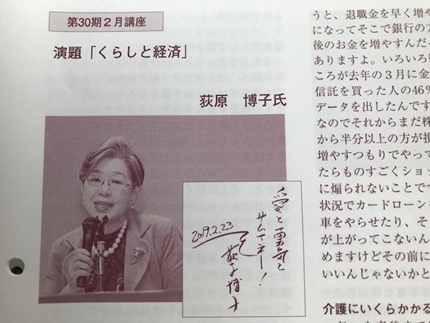 第30期2月講座
演題「くらしと経済」
荻原　博子氏
愛と勇気と
サムマネー!
2019.2.23
荻原博子
うと、退職金を早く増や
になってそこで銀行の方
後のお金を増やすんだっ
ありますよ。いろいろ
ころが去年の3月に金
信託を買った人の46%
データを出したんです
なのでそれからまだ株
から半分以上の方が損
増やすつもりでやって
たらものすごくショッ
に煽られないことです
状況でカードローンを
車をやらせたり、そ
が上がってこないん
めますけどその前に
いいんじゃないかと
介護にいくらかかる